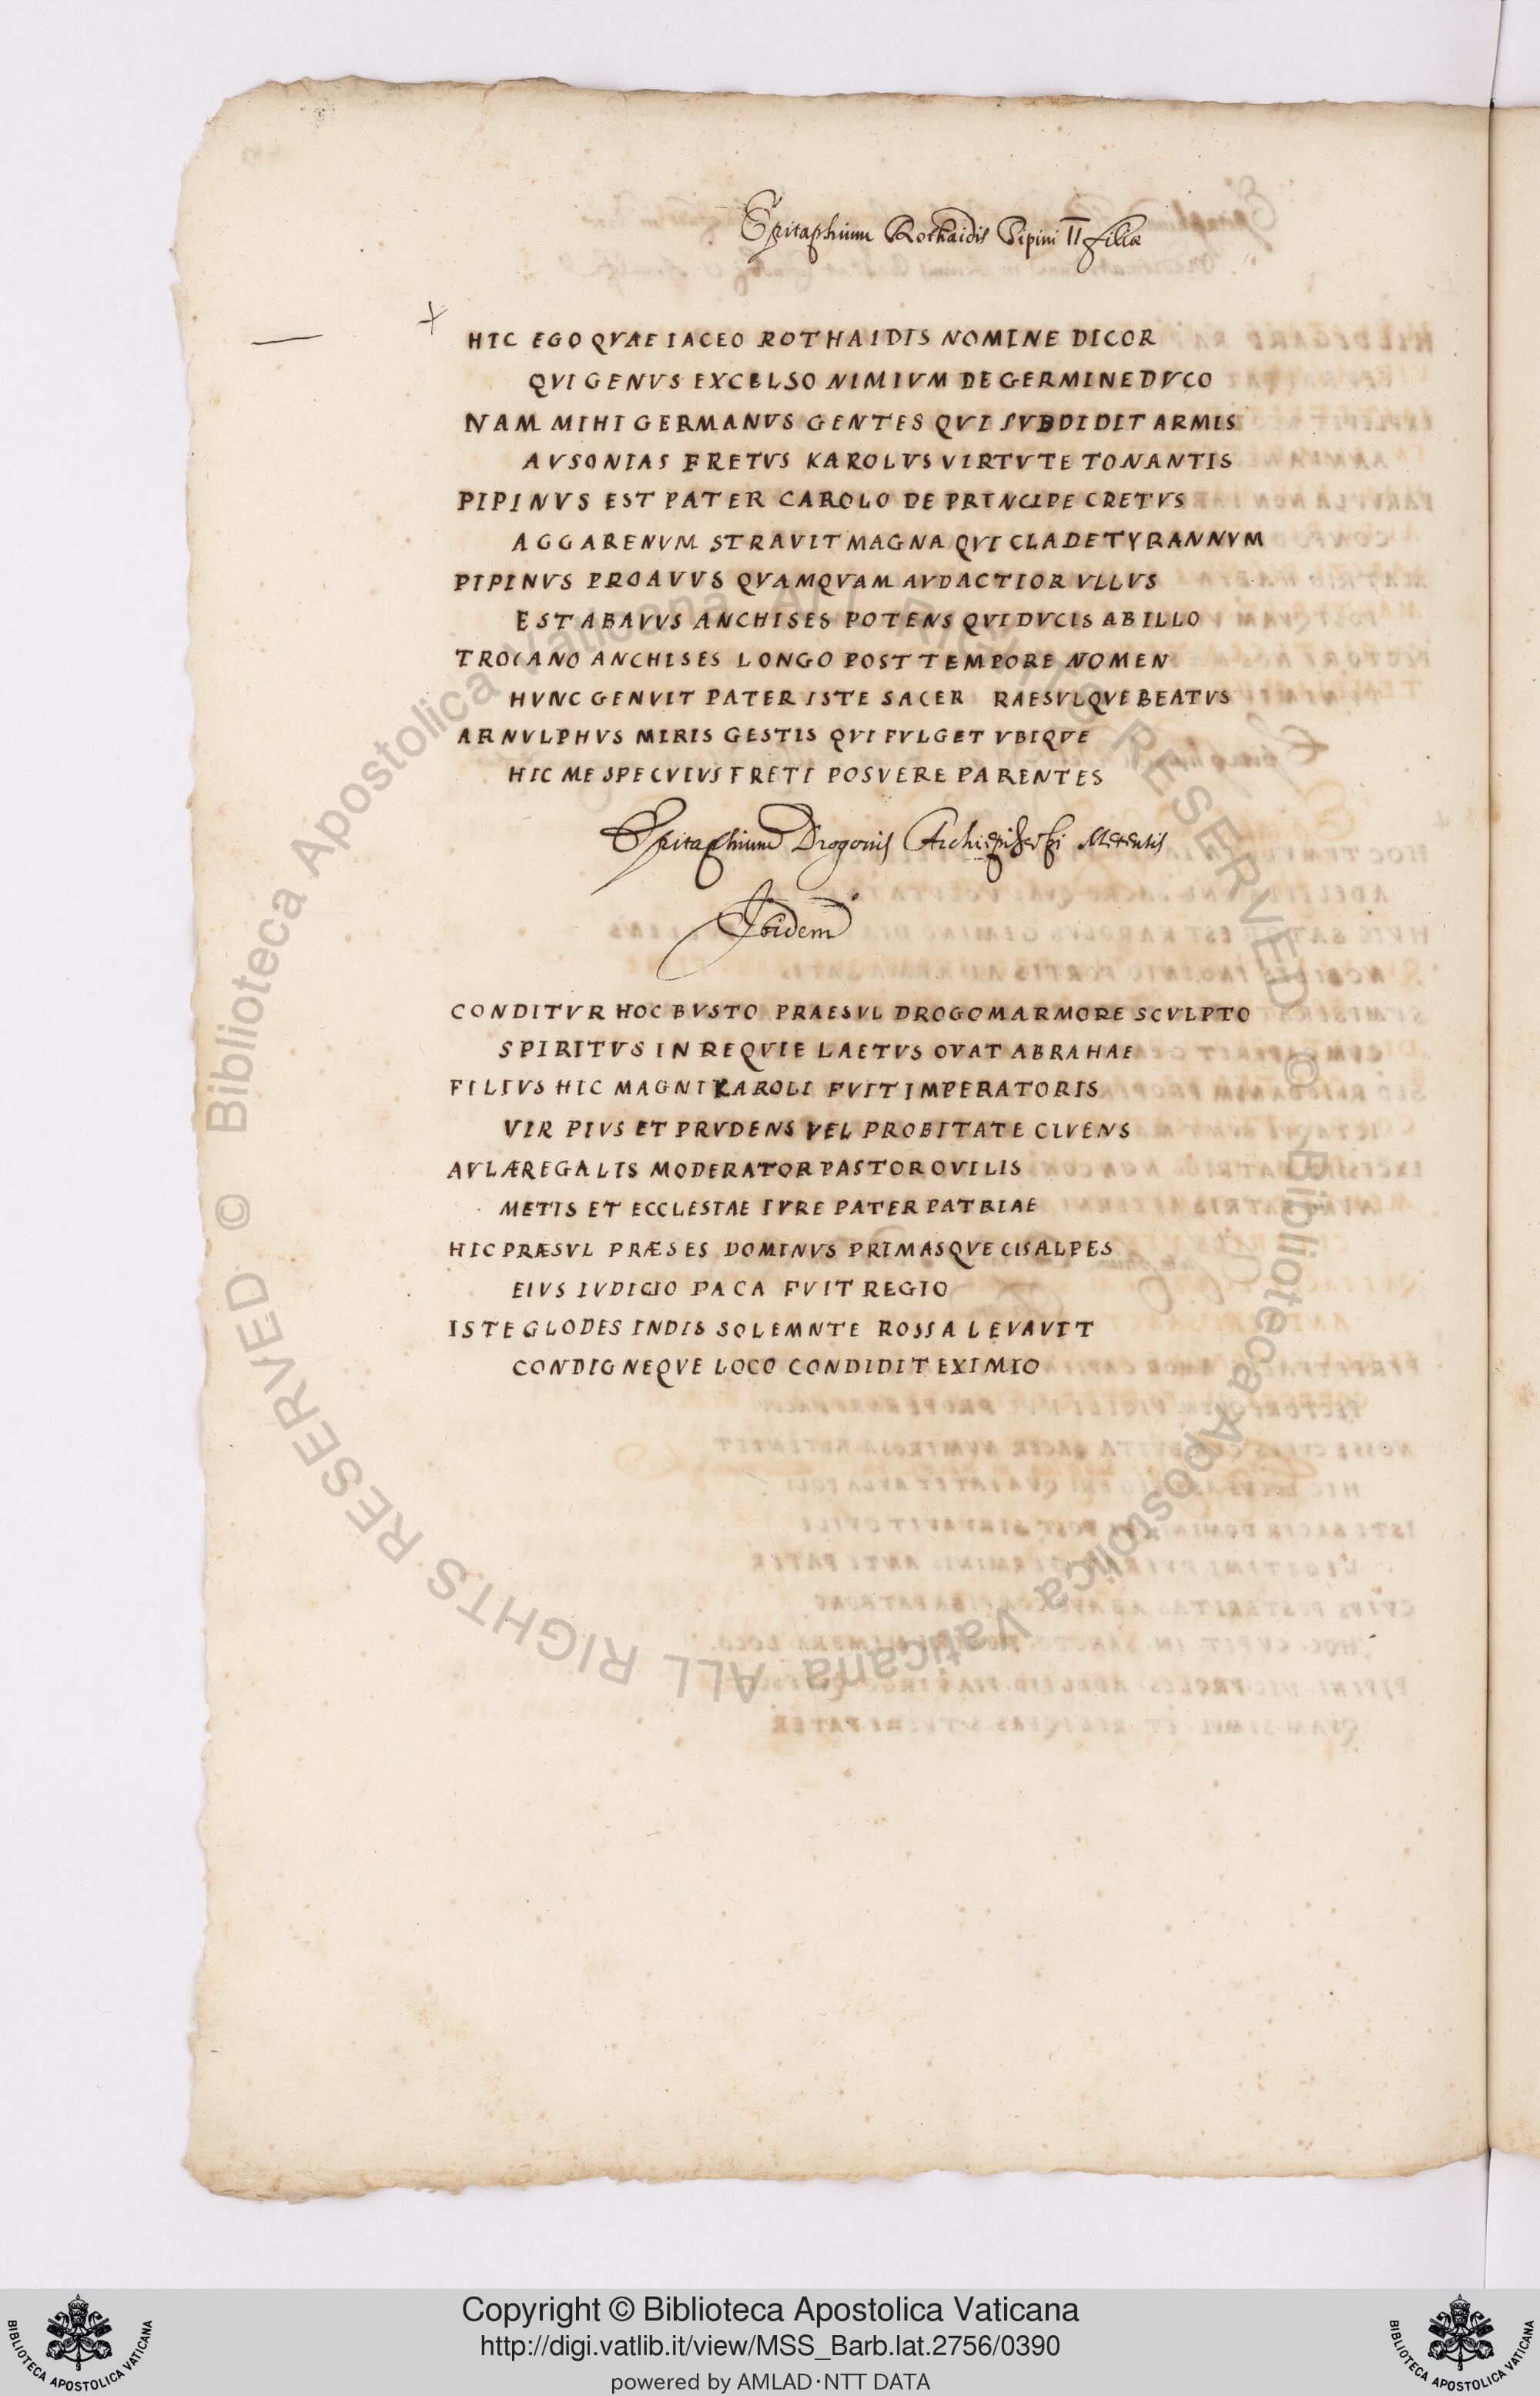 Epitaphium Rothaidis Pipini II filiæ
HIC EGO QVAE IACEO ROTHAIDIS NOMINE DICOR
QVI GENVS EXCELSO NIMIVM DE GERMINE DVCO
NAM MIHI GERMANVS GENTES QVI SVBDIDIT ARMIS
AVSONIAS FRETVS KAROLVS VIRTVTE TONANTIS
PIPINVS EST PATER CAROLO DE PRINCIPE CRETVS
AGGARENVM STRAVIT MAGNA QVI CLADE TYRANNVM
PIPINVS PROAVVS QVAMQVAM AVDACTIOR VLLVS
EST ABAVVS ANCHISES POTENS QVI DVCIS AB ILLO
TROIANO ANCHISES LONGO POST TEMPORE NOMEN
HVNC GENVIT PATER ISTE SACER RAESVLQVE BEATVS
ARNVLPHVS MIRIS GESTIS QVI FVLGET VBIQVE
HIC ME SPECVIVS FRETI POSVERE PARENTES
Epitaphium Drogonis Archiepiscopi Metensis
Ibidem
CONDITVR HOC BVSTO PRAESVL DROGO MARMORE SCVLPTO
SPIRITVS IN REQVIE LAETVS OVAT ABRAHAE
FILIVS HIC MAGNI KAROLI FVIT IMPERATORIS
VIR PIVS ET PRVDENS VEL PROBITATE CLVENS
AVLÆ REGALIS MODERATOR PASTOR OVILIS
METIS ET ECCLESIAE IVRE PATER PATRIAE
HIC PRÆSVL PRÆSES DOMINVS PRIMASQVE CIS ALPES
EIVS IVDICIO PACA FVIT REGIO
ISTE GLODESINDIS SOLEMNTE ROSSA LEVAVIT
CONDIGNEQVE LOCO CONDIDIT EXIMIO
© Biblioteca Apostolica Vaticana ALL RIGHTS RESERVED © Biblioteca Apostolica Vaticana ALL RIGHTS RESERVED
Copyright © Biblioteca Apostolica Vaticana
http://digi.vatlib.it/view/MSS_Barb.lat.2756/0390
powered by AMLAD·NTT DATA
BIBLIOTECA APOSTOLICA VATICANA
BIBLIOTECA APOSTOLICA VATICANA